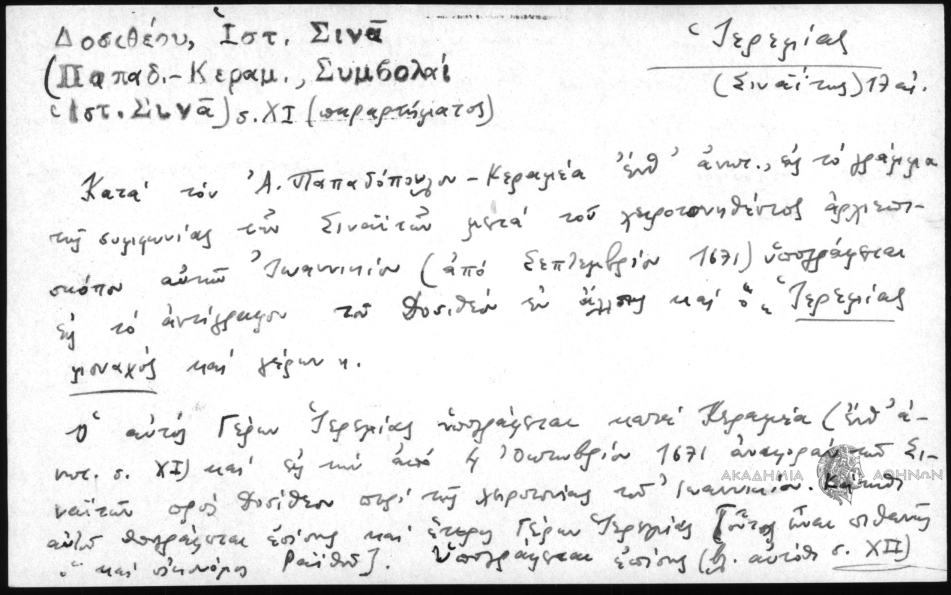 Δοσιθέου, Ἱστ. Σινᾶ
(Παπαδ.-Κεραμ., Συμβολαί
Ἱστ. Σινᾶ) σ. XI (παραρτήματος)
Ἱερεμίας
(Σιναΐτης) 17 αἰ.
Κατά τόν Ἀ. Παπαδόπουλον-Κεραμέα ἐνθ' ἀνωτ., εἰς τό γράμμα
τῆς συμφωνίας τῶν Σιναϊτῶν μετά τοῦ χειροτονηθέντος ἀρχιεπι-
σκόπου αὐτῶν Ἰωαννικίου (ἀπό Σεπτεμβρίου 1671) ὑπογράφεται
εἰς τό ἀντίγραφον τοῦ Δοσιθέου ἐν ἄλλοις καί ὁ "Ἱερεμίας
μοναχός καί γέρων".
Ὁ αὐτός Γέρων Ἱερεμίας ὑπογράφεται κατά Κεραμέα (ἐνθ' ἀ-
νωτ. σ. XI) καί εἰς τήν ἀπό 4 Ὀκτωβρίου 1671 ἀναφοράν τῶν Σι-
ναϊτῶν πρός Δοσίθεον περί τῆς χειροτονίας τοῦ Ἰωαννικίου.
αὐτοῦ ὑπογράφεται ἐπίσης καί ἕτερος Γέρων Ἱερεμίας [οὗτος εἶναι πιθανῶς
ὁ καί οἰκονόμος Ραϊθοῦ]. Ὑπογράφεται ἐπίσης (βλ. αὐτόθι σ. XII)
ΑΚΑΔΗΜΙΑ ΑΘΗΝΩΝ